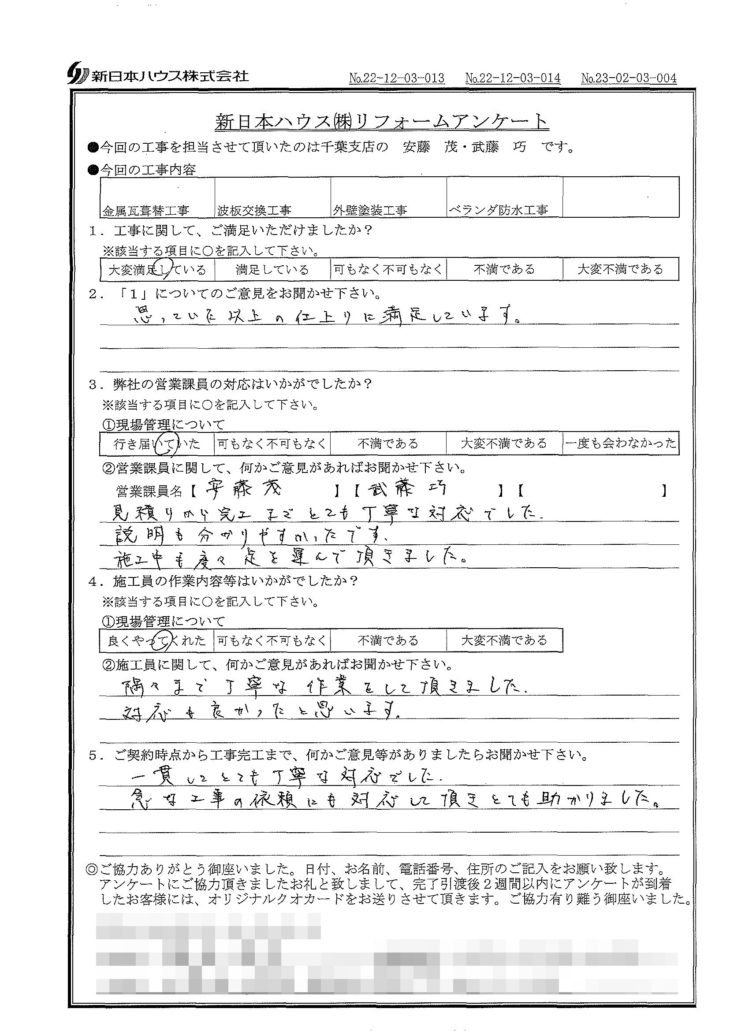 新日本ハウス株式会社 No.22-12-03-013 No.22-12-03-014 No.23-02-03-004
新日本ハウス㈱リフォームアンケート
●今回の工事を担当させて頂いたのは千葉支店の 安藤 茂・武藤 巧 です。
●今回の工事内容
金属瓦葺替工事 波板交換工事 外壁塗装工事 ベランダ防水工事
1．工事に関して、ご満足いただけましたか？
※該当する項目に○を記入して下さい。
大変満足している 満足している 可もなく不可もなく 不満である 大変不満である
2．「1」についてのご意見をお聞かせ下さい。
思っていた以上の仕上りに満足しています。
3．弊社の営業課員の対応はいかがでしたか？
※該当する項目に○を記入して下さい。
①現場管理について
行き届いていた 可もなく不可もなく 不満である 大変不満である 一度も会わなかった
②営業課員に関して、何かご意見があればお聞かせ下さい。
営業課員名【 安藤茂 】【 武藤巧 】【 】
見積りから完工までとても丁寧な対応でした.
説明も分かりやすかったです.
施工中も度々足を運んで頂きました。
4．施工員の作業内容等はいかがでしたか？
※該当する項目に○を記入して下さい。
①現場管理について
良くやってくれた 可もなく不可もなく 不満である 大変不満である
②施工員に関して、何かご意見があればお聞かせ下さい。
隅々まで丁寧な作業をして頂きました.
対応も良かったと思います.
5．ご契約時点から工事完工まで、何かご意見等がありましたらお聞かせ下さい。
一貫してとても丁寧な対応でした.
急な工事の依頼にも対応して頂きとても助かりました。
◎ご協力ありがとう御座いました。日付、お名前、電話番号、住所のご記入をお願い致します。
アンケートにご協力頂きましたお礼と致しまして、完了引渡後2週間以内にアンケートが到着
したお客様には、オリジナルクオカードをお送りさせて頂きます。ご協力有り難う御座いました。